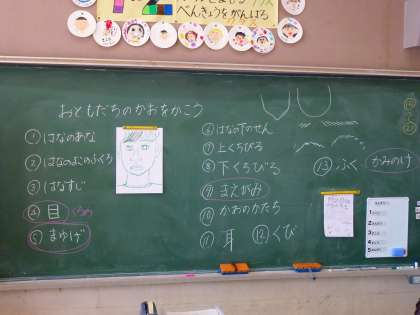 べんきょうをがんばろ
おともだちのかおをかこう
① はなのあな
② はなのよこのふくろ
③ はなすじ
④ 目
⑤ まゆげ
⑥ はなの下のせん
⑦ 上くちびる
⑧ 下くちびる
⑨ まえがみ
⑩ かおのかたち
⑪ 耳 ⑫ くび
⑬ ふく かみのけ